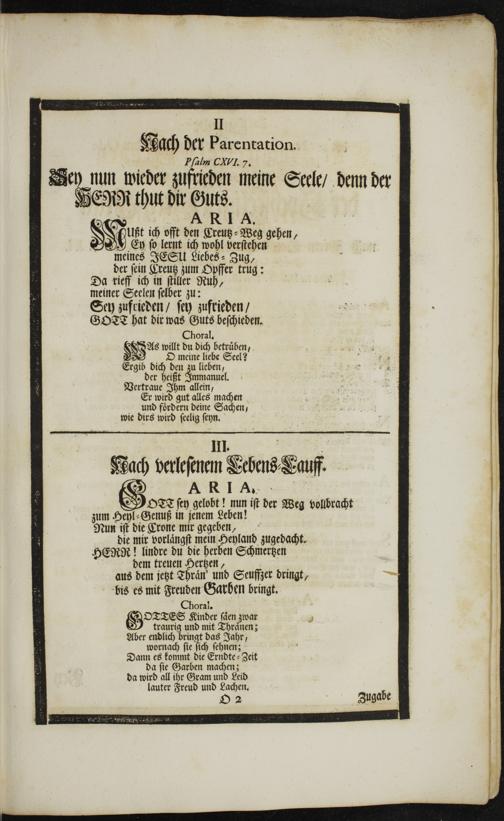 II
Nach der Parentation.
Psalm CXVI. 7.
Sey nun wieder zufrieden meine Seele/ denn der
HERR thut dir Guts.
ARIA.
Mußt ich offt den Creutz-Weg gehen,
Ey so lernt ich wohl verstehen
meines JESU Liebes-Zug,
der sein Creutz zum Opffer trug:
Da rieff ich in stiller Ruh,
meiner Seelen selber zu:
Sey zufrieden/ sey zufrieden/
GOTT hat dir was Guts beschieden.
Choral.
Was willt du dich betrüben,
O meine liebe Seel?
Ergib dich den zu lieben,
der heißt Immanuel.
Vertraue Ihm allein,
Er wird gut alles machen
und fördern deine Sachen,
wie dirs wird seelig seyn.
III.
Nach verlesenem Lebens-Lauff.
ARIA.
GOTT sey gelobt! nun ist der Weg vollbracht
zum Heyl-Genuß in jenem Leben!
Nun ist die Crone mir gegeben,
die mir vorlängst mein Heyland zugedacht.
HERR! lindre du die herben Schmertzen
dem treuen Hertzen,
aus dem jetzt Thrän' und Seuffzer dringt,
bis es mit Freuden Garben bringt.
Choral.
GOTTES Kinder säen zwar
traurig und mit Thränen;
Aber endlich bringt das Jahr,
wornach sie sich sehnen;
Dann es kommt die Erndte-Zeit
da sie Garben machen;
da wird all ihr Gram und Leid
lauter Freud und Lachen.
O 2
Zugabe